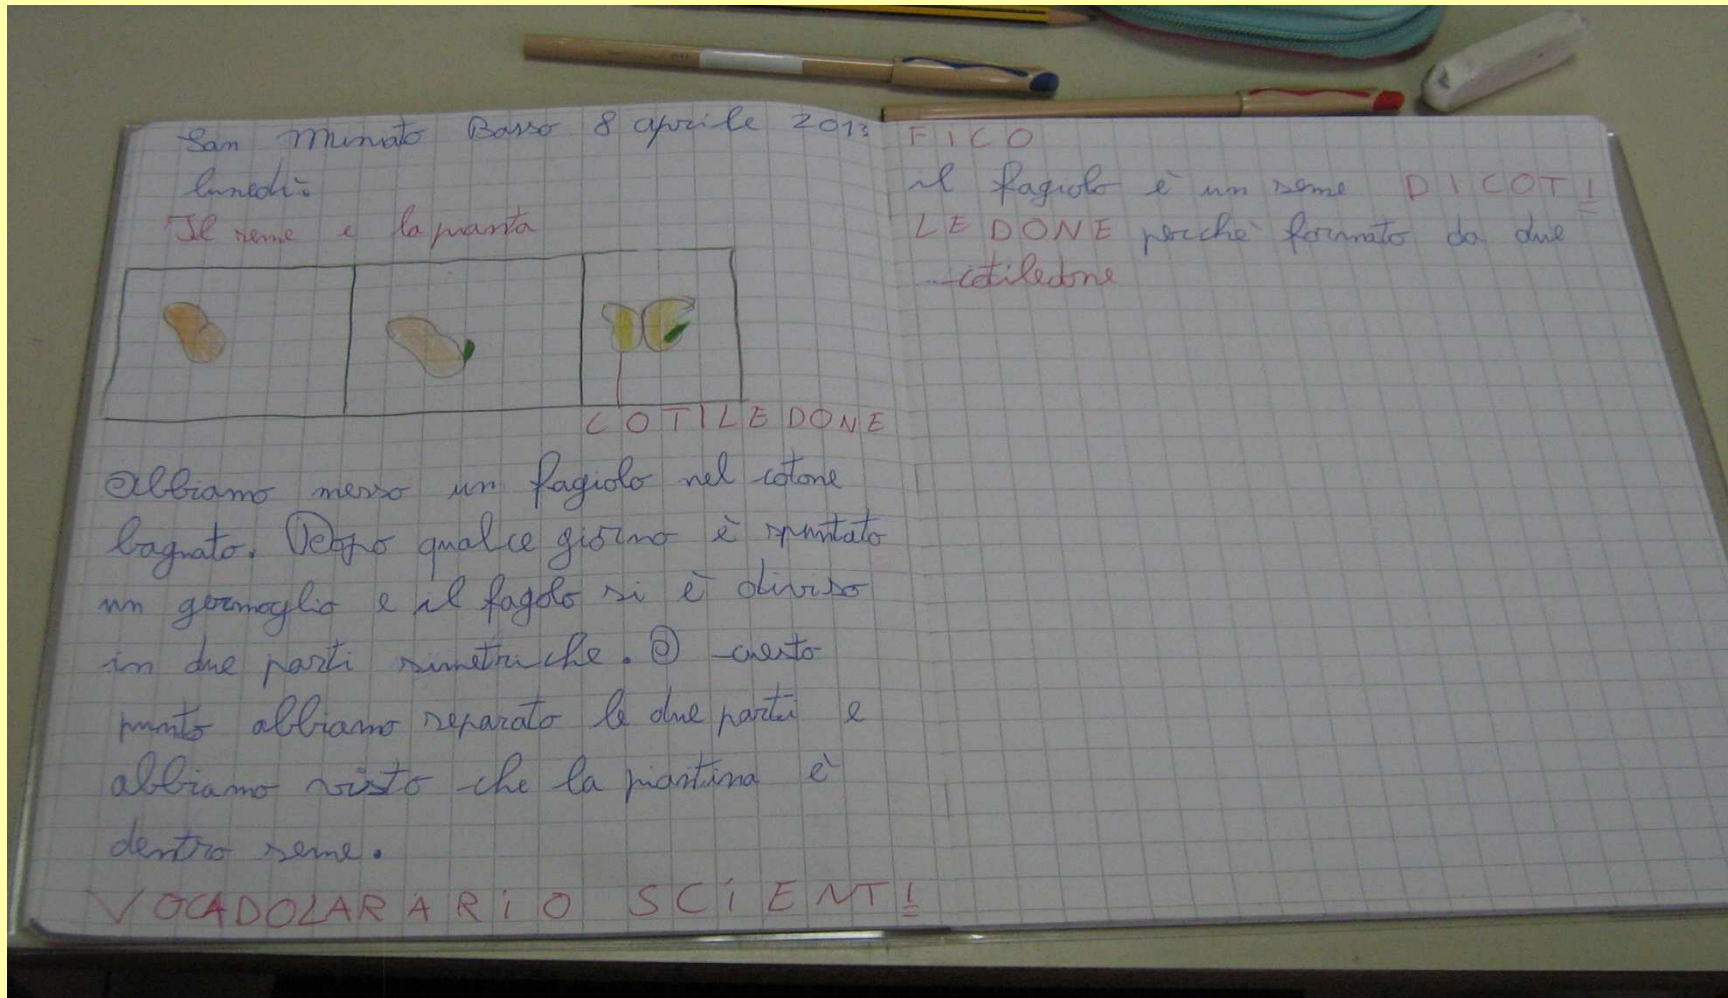 San Miniato Basso 8 aprile 2013
lunedì.
Il seme e la pianta
COTILEDONE
Abbiamo messo un fagiolo nel cotone
bagnato. Dopo qualce giorno è spuntato
un germoglio e il fagolo si è diviso
in due parti simetriche. A cuesto
punto abbiamo separato le due parti e
abbiamo visto che la piantina è
dentro seme.
VOCADOLARARIO SCIENTI
FICO
il fagiolo è un seme DICOTI
LEDONE perchè formato da due
cotiledone